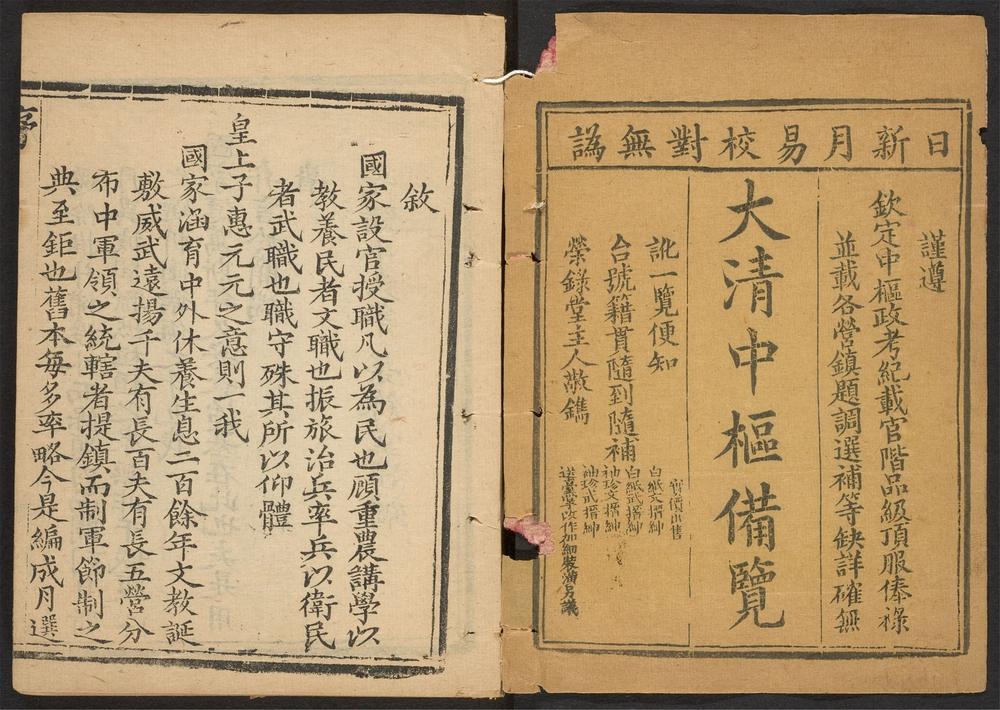 日新月易校對無譌
謹遵
欽定中樞政考紀載官階品級頂服俸祿
並載各營鎮題調選補等缺詳確無
大清中樞備覽
訛一覽便知
台號籍貫隨到隨補
榮錄堂主人敬鐫
實價出售
白紙文搢紳
白紙武搢紳
袖珍文搢紳
袖珍武搢紳
送臺學政作加細裝潢另議
敘
國家設官授職凡以為民也顧重農講學以
教養民者文職也振旅治兵率兵以衛民
者武職也職守殊其所以仰體
皇上子惠元元之意則一我
國家涵育中外休養生息二百餘年文教誕
敷威武遠揚千夫有長百夫有長五營分
布中軍領之統轄者提鎮而制軍節制之
典至鉅也舊本每多率略今是編成月選